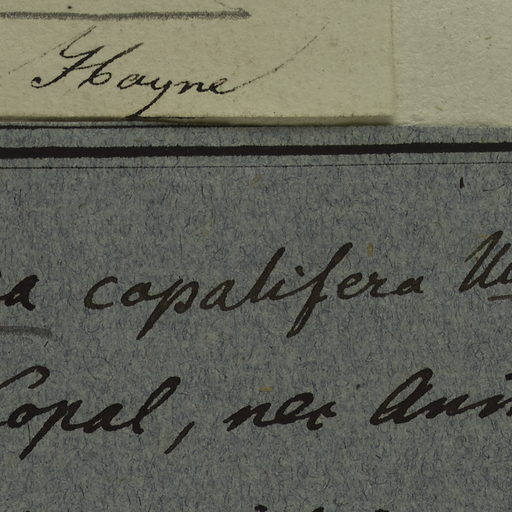 Hayne
a copalifera
Copal, nec Ani